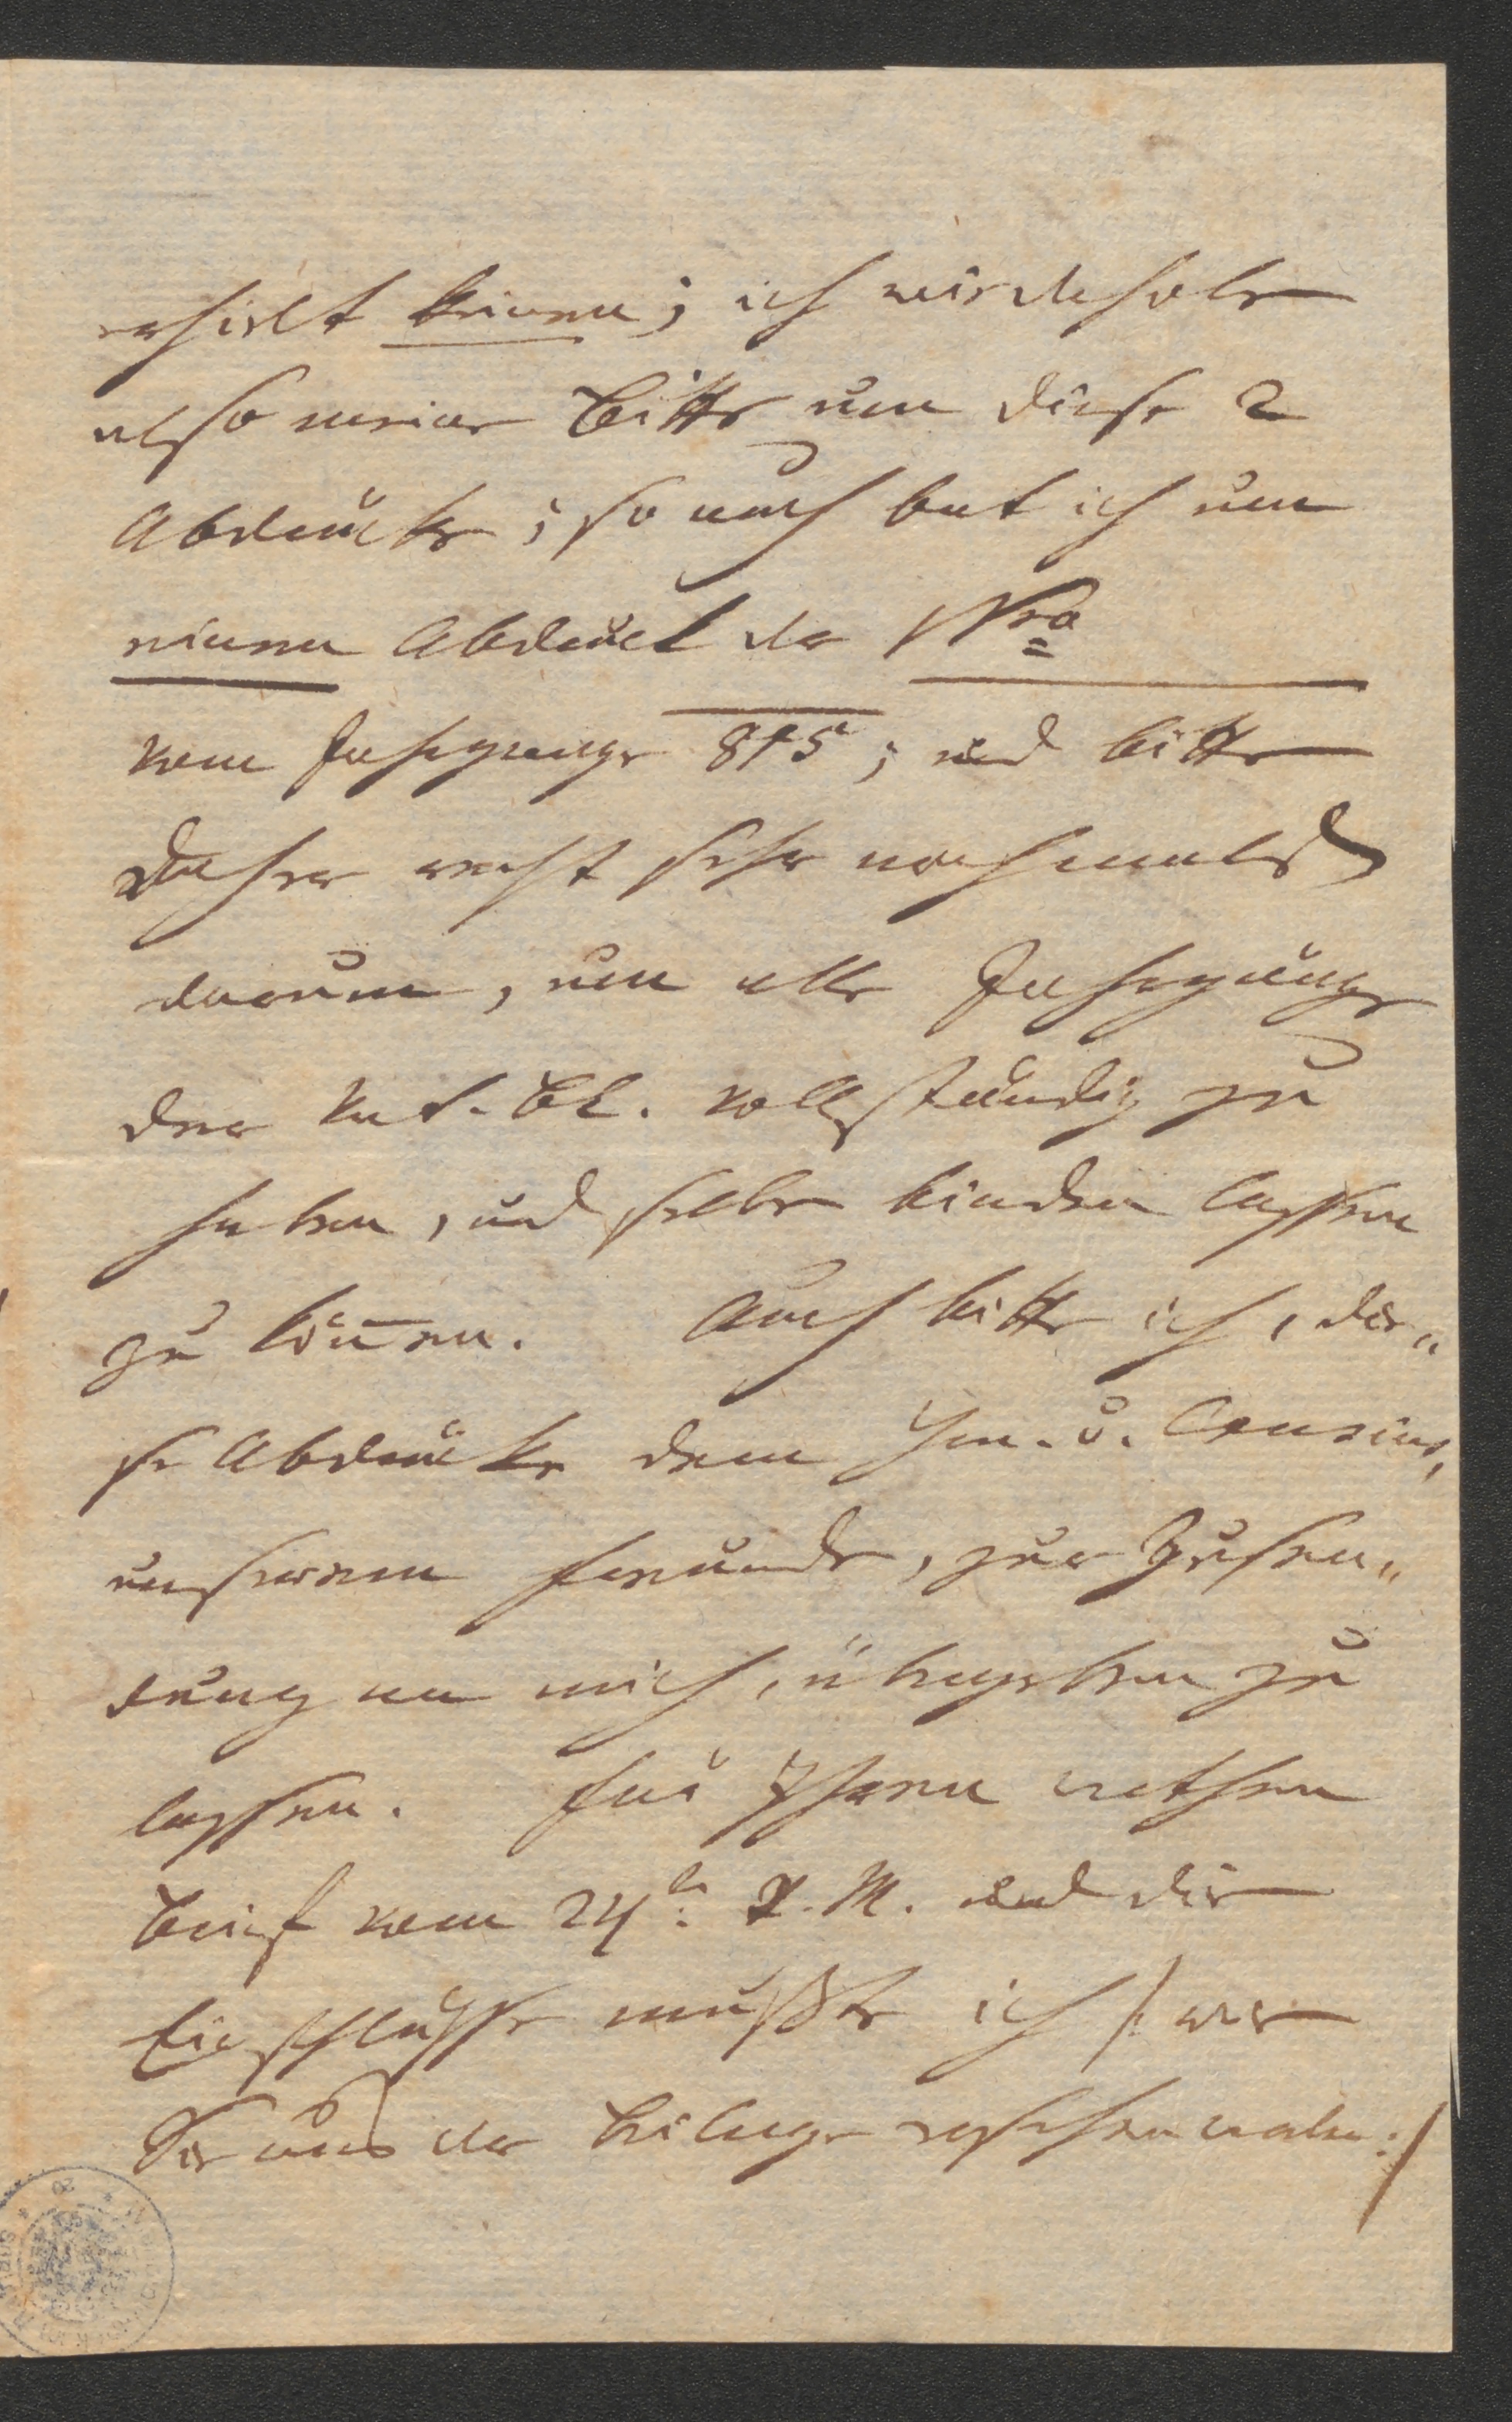 erhielt keinen; ich wiederhole
also meine Bitte um diese 2
Abdrücke; so auch bat ich um
einen Abdruck der Nro
vom Jahrgange 815; und bitte
daher recht sehr nochmals
darum, um alle Jahrgänge
der vat. Bl. vollständig zu
haben, und selbe binden lassen
zu können. Auch bitte ich, die„
se Abdrücke dem Hrn. v.
unserem Freunde, zur Zusen„
dung an mich, übergeben zu
lassen. Für Ihren werthen
Brief vom 24t. d. M. und die
Einschlüsse mußte ich /: wie
Sie aus der Beilage ersehen :/